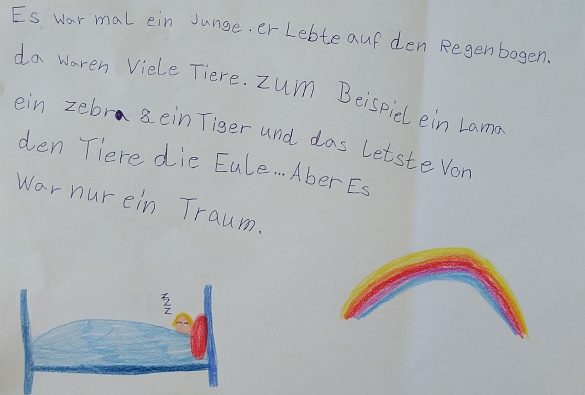 Es war mal ein Junge. er Lebte auf den Regenbogen.
da waren Viele Tiere. zum Beispiel ein Lama
ein zebra & ein Tiger und das letste Von
den Tiere die Eule... Aber Es
War nur ein Traum.
z
z
z